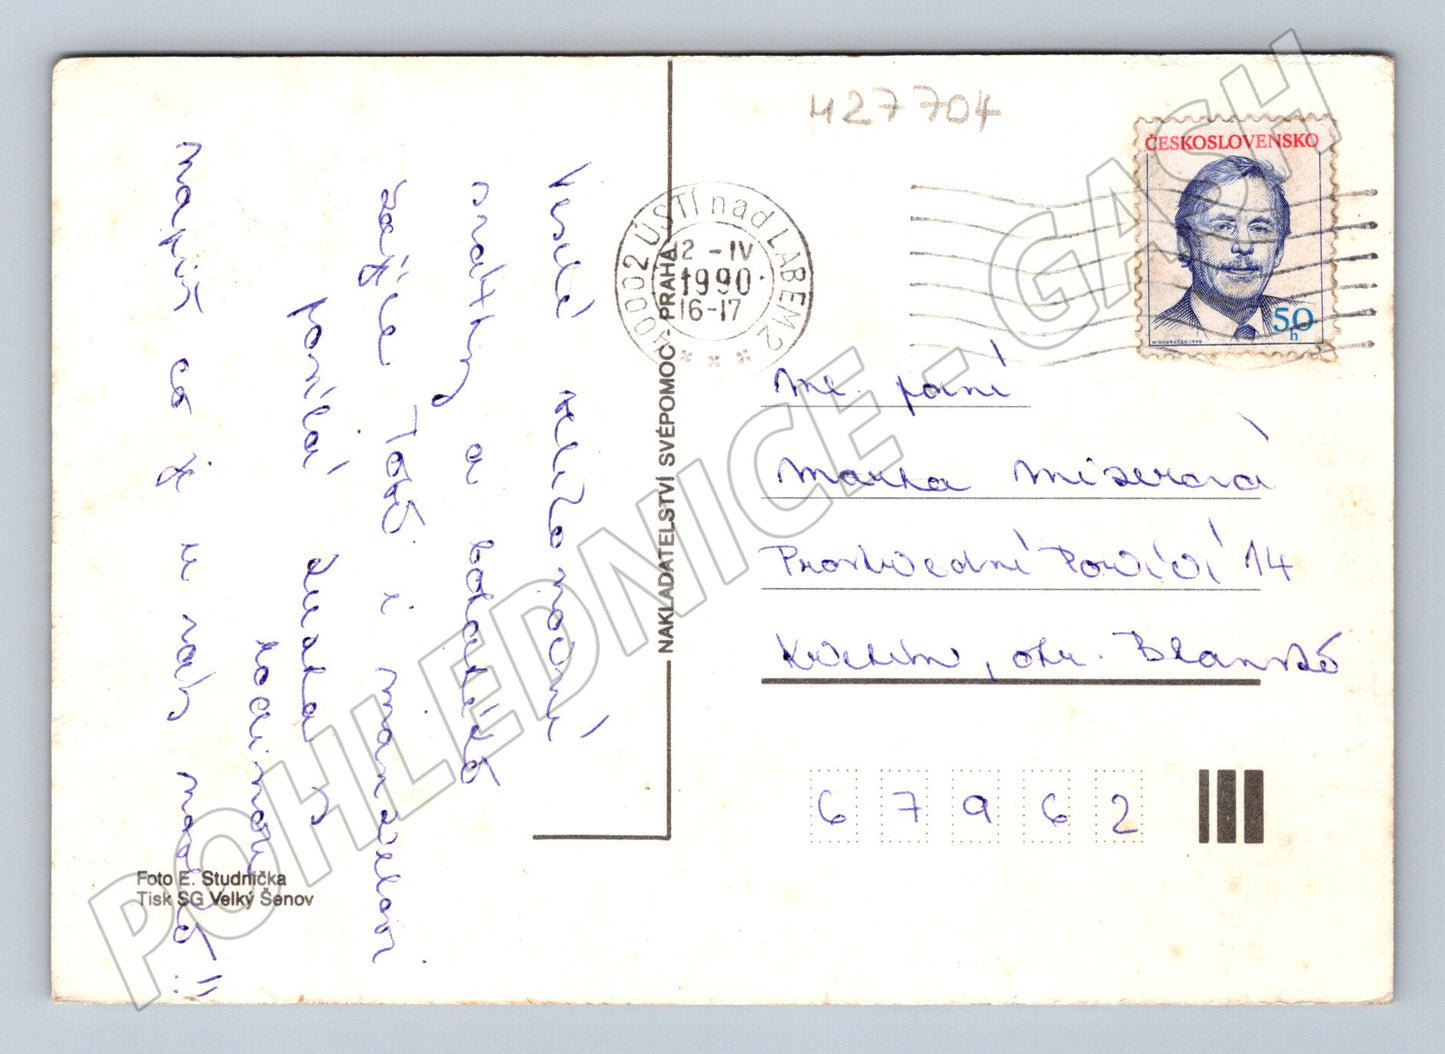 427704
ČESKOSLOVENSKO
50
h
40002 ÚSTÍ nad LABEM 2
12 -IV
1990
16-17
NAKLADATELSTVÍ SVÉPOMOC - PRAHA
Veselé velikonoční
svátky a bohatého
zajíce Tobě i manželovi
posílá Zuzka s
rodinou
napiš co je u vás nového!!
Vš. paní
Marka Mizerová
Prostřední Poříčí 14
Křetín, okr. Blansko
67962
Foto E. Studnička
Tisk SG Velký Šenov
POHLEDNICE - GASH